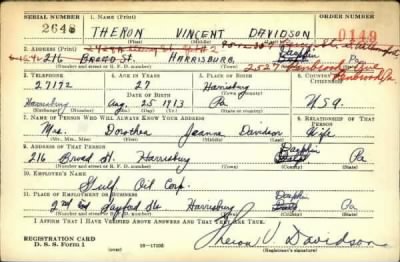 SERIAL NUMBER 1. NAME (Print) ORDER NUMBER
2645 THERON VINCENT DAVIDSON 0149
(First) (Middle) (Last)
2. ADDRESS (Print)
216 BROAD St. HARRISBURG, Dauphin Pa
(Number and street or R. F. D. number) (Town) (County) (State)
3. TELEPHONE 4. AGE IN YEARS 5. PLACE OF BIRTH 6. COUNTRY OF CITIZENSHIP
27172 27 Harrisburg
DATE OF BIRTH
Harrisburg Aug. 25 1913 Pa USA.
(Exchange) (Number) (Mo.) (Day) (Yr.) (Town or county) (State or country)
7. NAME OF PERSON WHO WILL ALWAYS KNOW YOUR ADDRESS 8. RELATIONSHIP OF THAT PERSON
Mrs. Dorothea Davidson Wife
(Mr., Mrs., Miss) (First) (Middle) (Last)
9. ADDRESS OF THAT PERSON
216 Broad St. Harrisburg Dauphin Pa
(Number and street or R. F. D. number) (Town) (County) (State)
10. EMPLOYER'S NAME
Gulf Oil Corp.
11. PLACE OF EMPLOYMENT OR BUSINESS
2nd Sts Harrisburg Dauphin Pa
(Number and street or R. F. D. number) (Town) (County) (State)
I AFFIRM THAT I HAVE VERIFIED ABOVE ANSWERS AND THAT THEY ARE TRUE.
REGISTRATION CARD
D. S. S. Form 1
Theron V. Davidson
(Registrant's signature)